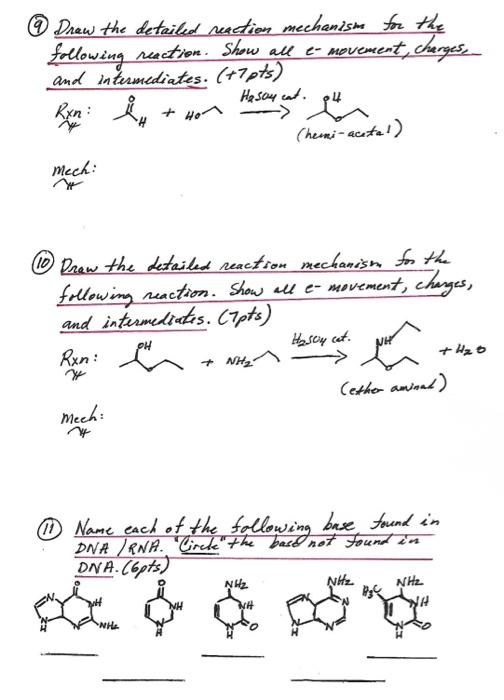 ⑨ Draw the detailed reaction mechanism for the
following reaction. Show all e- movement, charges,
and intermediates. (+7pts)
Rxn: O H + HO H2SO4 cat. OH O
(hemi-acetal)
Mech:
⑩ Draw the detailed reaction mechanism for the
following reaction. Show all e- movement, charges,
and intermediates. (7pts)
Rxn: OH O + NH2 H2SO4 cat. NH O + H2O
(ether aminal)
Mech:
⑪ Name each of the following base found in
DNA / RNA. "Circle" the base not found in
DNA. (6pts)
N N H O NH N NH2
O NH N H
NH2 NH N H O
N N H NH2 N N
H3C NH2 NH N H O